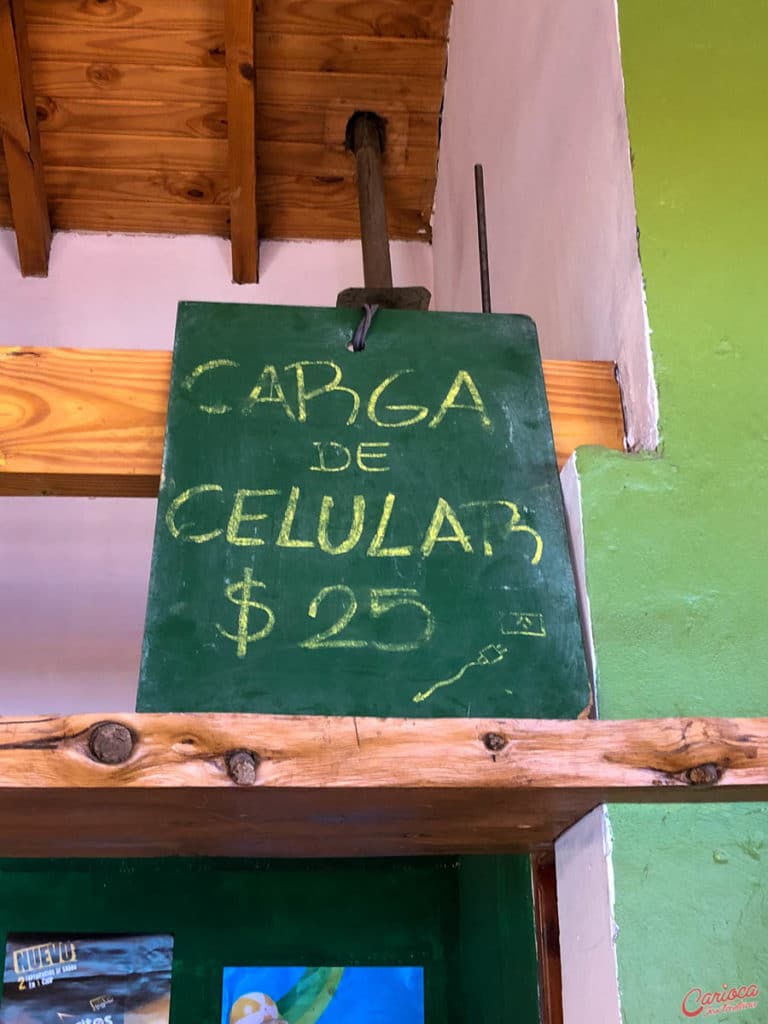 CARGA
DE
CELULAR
$ 25
NUEVO!
Carioca